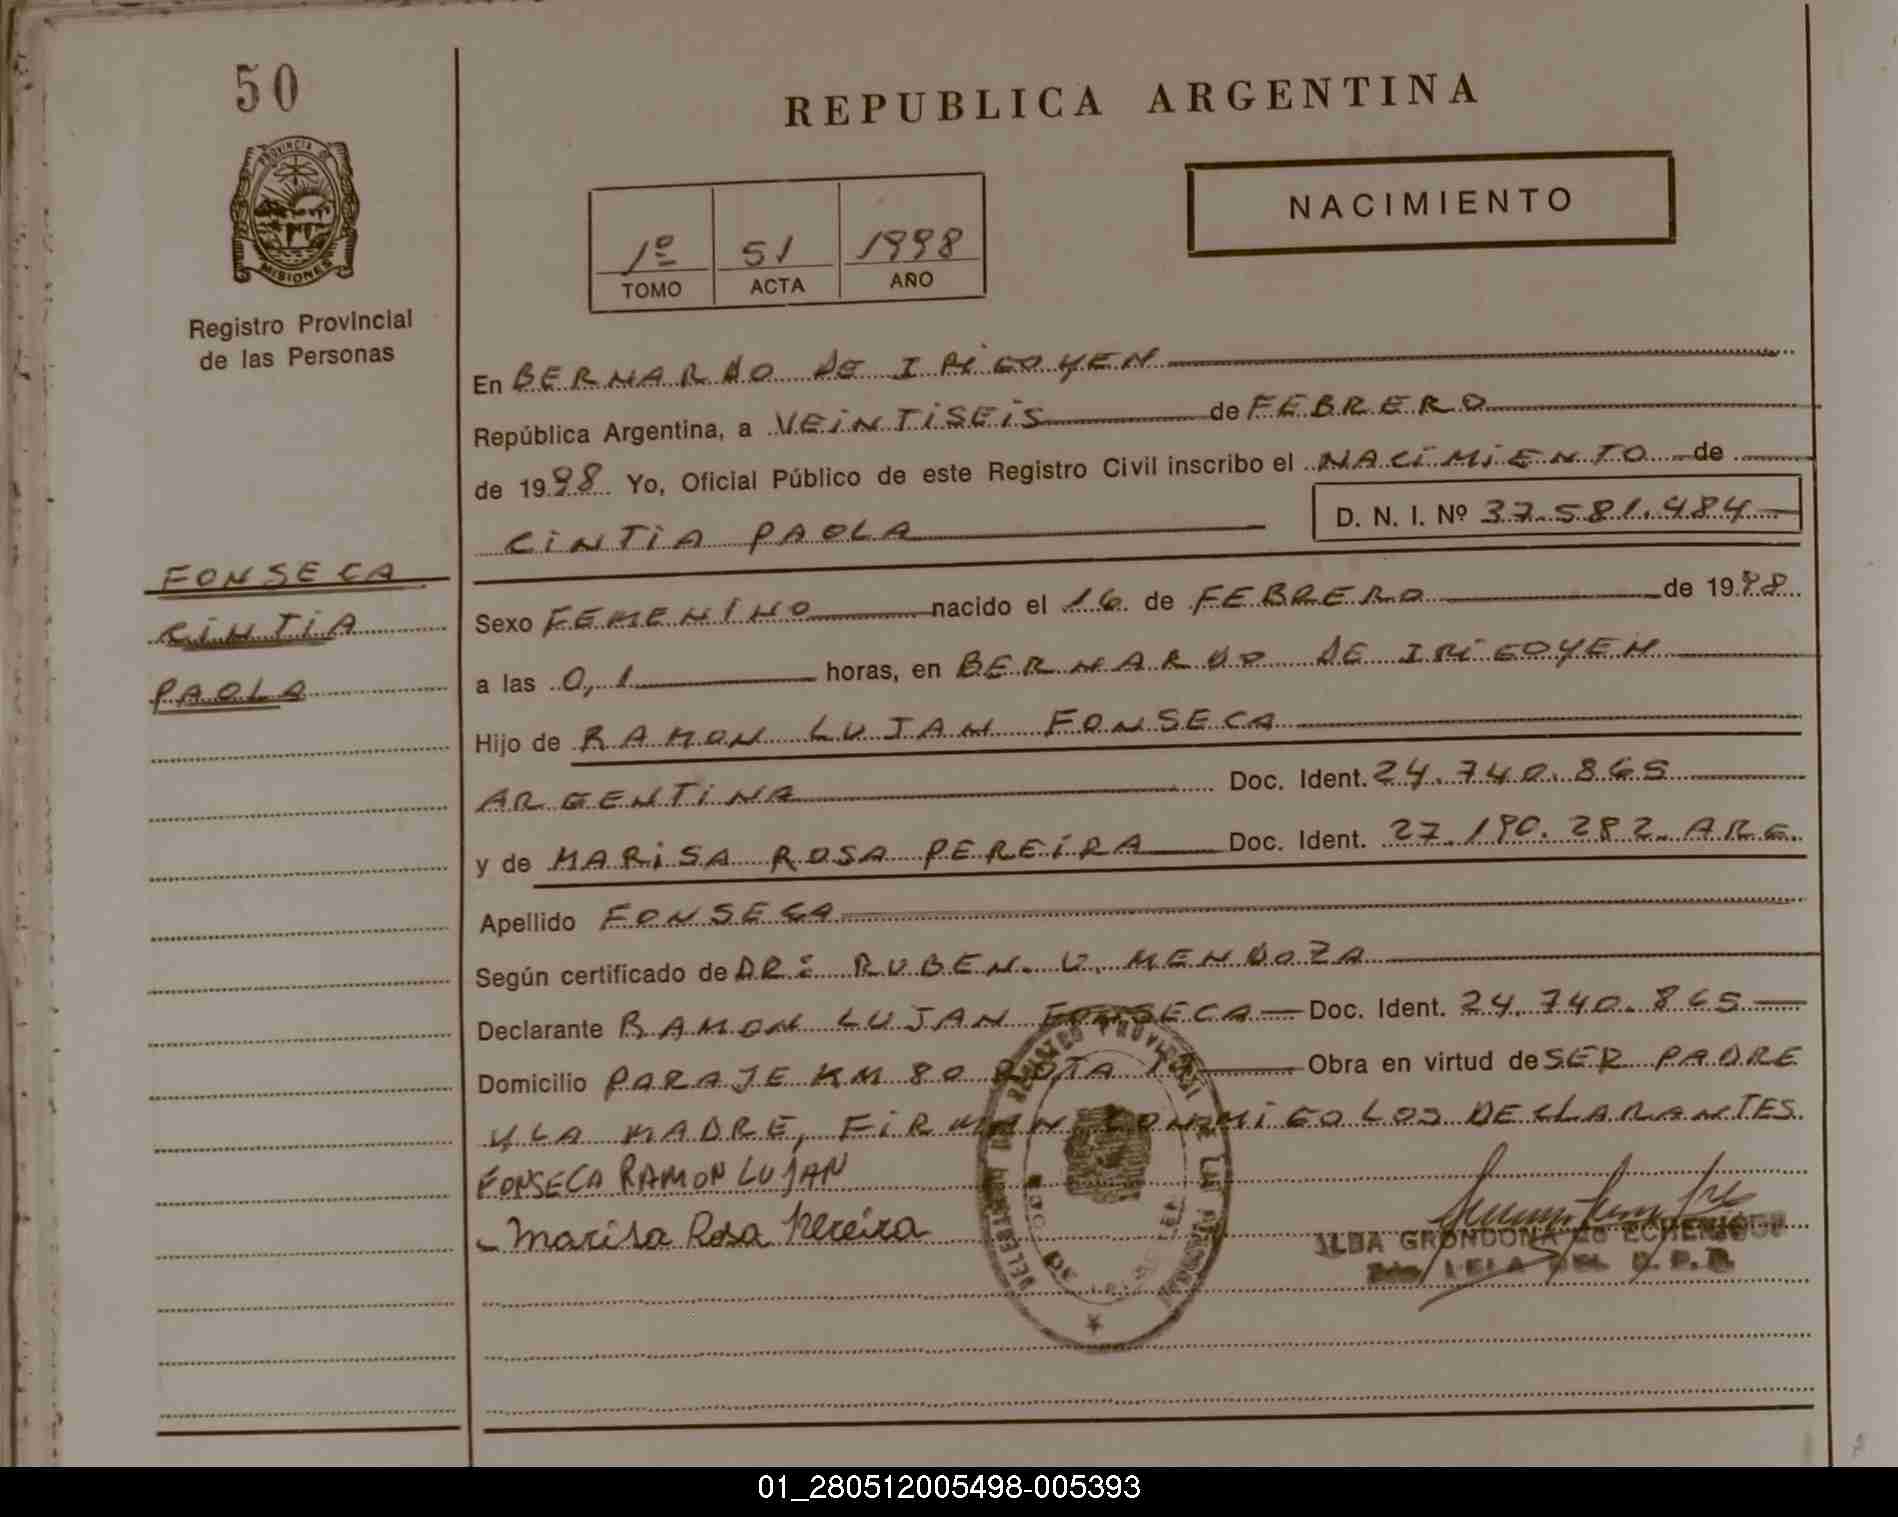 50
REPUBLICA ARGENTINA
PROVINCIA DE
MISIONES
Registro Provincial
de las Personas
NACIMIENTO
1º 51 1998
TOMO ACTA AÑO
En BERNARDO DE IRIGOYEN
República Argentina, a VEINTISEIS de FEBRERO
de 1998 Yo, Oficial Público de este Registro Civil inscribo el NACIMIENTO de
CINTIA PAOLA D. N. I. Nº 37.581.484
FONSECA
CINTIA
PAOLA
Sexo FEMENINO nacido el 16 de FEBRERO de 1998
a las 0,1 horas, en BERNARDO DE IRIGOYEN
Hijo de RAMON LUJAN FONSECA
ARGENTINA Doc. Ident. 24.740.865
y de MARISA ROSA PEREIRA Doc. Ident. 27.190.282. ARG.
Apellido FONSECA
Según certificado de DR: RUBEN. U. MENDOZA
Declarante RAMON LUJAN FONSECA Doc. Ident. 24.740.865
Domicilio PARAJE KM 80 RUTA Obra en virtud de SER PADRE
Y LA MADRE, FIRMAN CONMIGO LOS DECLARANTES.
FONSECA RAMON LUJAN
Marisa Rosa Pereira
ALBA GRONDONA de ECHENIQUE
01_280512005498-005393